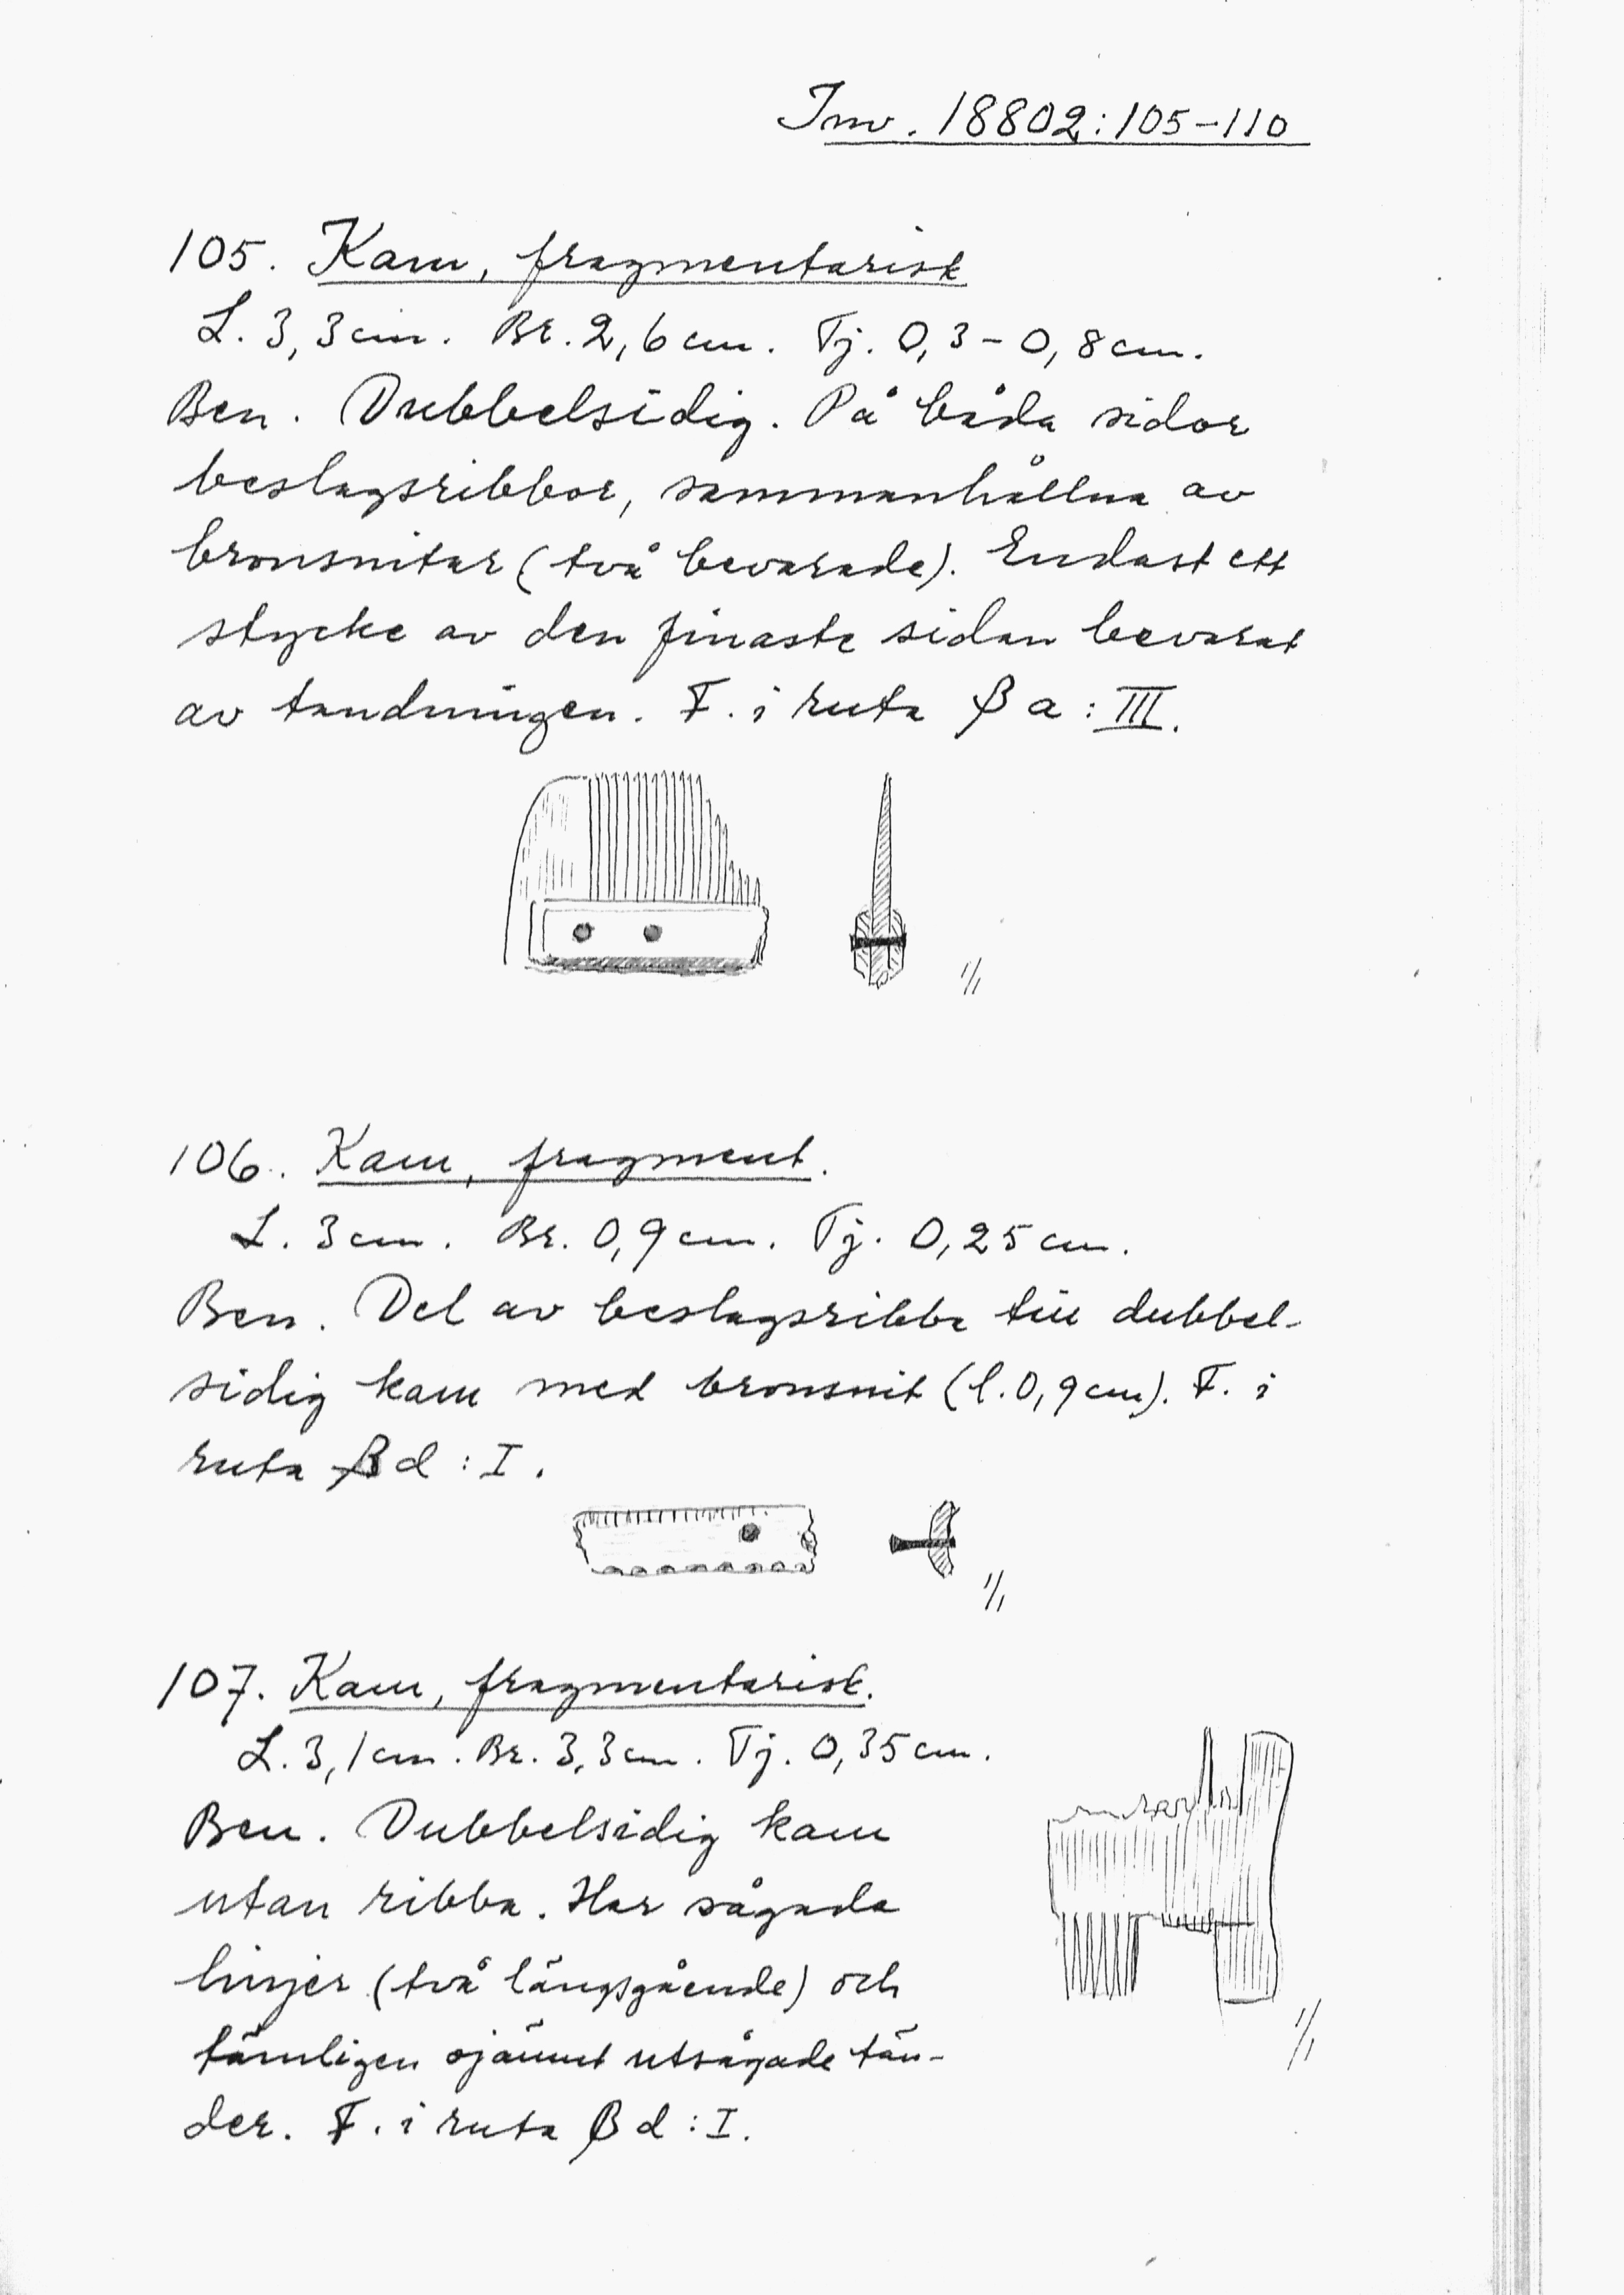 Inv. 18802:105-110
105. Kam, fragmentarisk
L. 3,3 cm. Br. 2,6 cm. Tj. 0,3-0,8 cm.
Ben. Dubbelsidig. På båda sidor
beslagsribbor, sammanhållna av
bronsnitar (två bevarade). Endast ett
stycke av den finaste sidan bevarat
av tandningen. F. i ruta β a : III.
1/1
106. Kam, fragment.
L. 3 cm. Br. 0,9 cm. Tj. 0,25 cm.
Ben. Del av beslagsribba till dubbel-
sidig kam med bronsnit (l. 0,9 cm). F. i
ruta β d : I.
1/1
107. Kam, fragmentarisk.
L. 3,1 cm. Br. 3,3 cm. Tj. 0,35 cm.
Ben. Dubbelsidig kam
utan ribba. Har sågada
linjer (två längsgående) och
tämligen ojämnt utsågade tän-
der. F. i ruta β d : I.
1/1